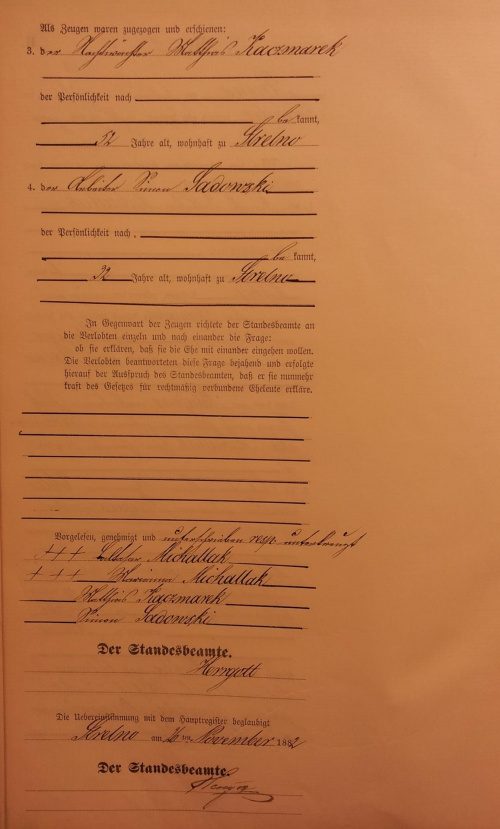 Als Zeugen waren zugezogen und erschienen:
3. der Nachtwächter Matthias Kaczmarek
der Persönlichkeit nach
be kannt,
52 Jahre alt, wohnhaft zu Strelno
4. der Arbeiter Simon Sadowski
der Persönlichkeit nach
be kannt,
32 Jahre alt, wohnhaft zu Strelno
In Gegenwart der Zeugen richtete der Standesbeamte an
die Verlobten einzeln und nach einander die Frage:
ob sie erklären, daß sie die Ehe mit einander eingehen wollen.
Die Verlobten beantworteten diese Frage bejahend und erfolgte
hierauf der Ausspruch des Standesbeamten, daß er sie nunmehr
kraft des Gesetzes für rechtmäßig verbundene Eheleute erkläre.
Vorgelesen, genehmigt und unterschrieben resp. unterkreuzt
+++ Balthasar Michallak
+++ Marianna Michallak
Matthias Kaczmarek
Simon Sadowski
Der Standesbeamte.
Herrgott
Die Uebereinstimmung mit dem Hauptregister beglaubigt
Strelno am ten November 1882
Der Standesbeamte.